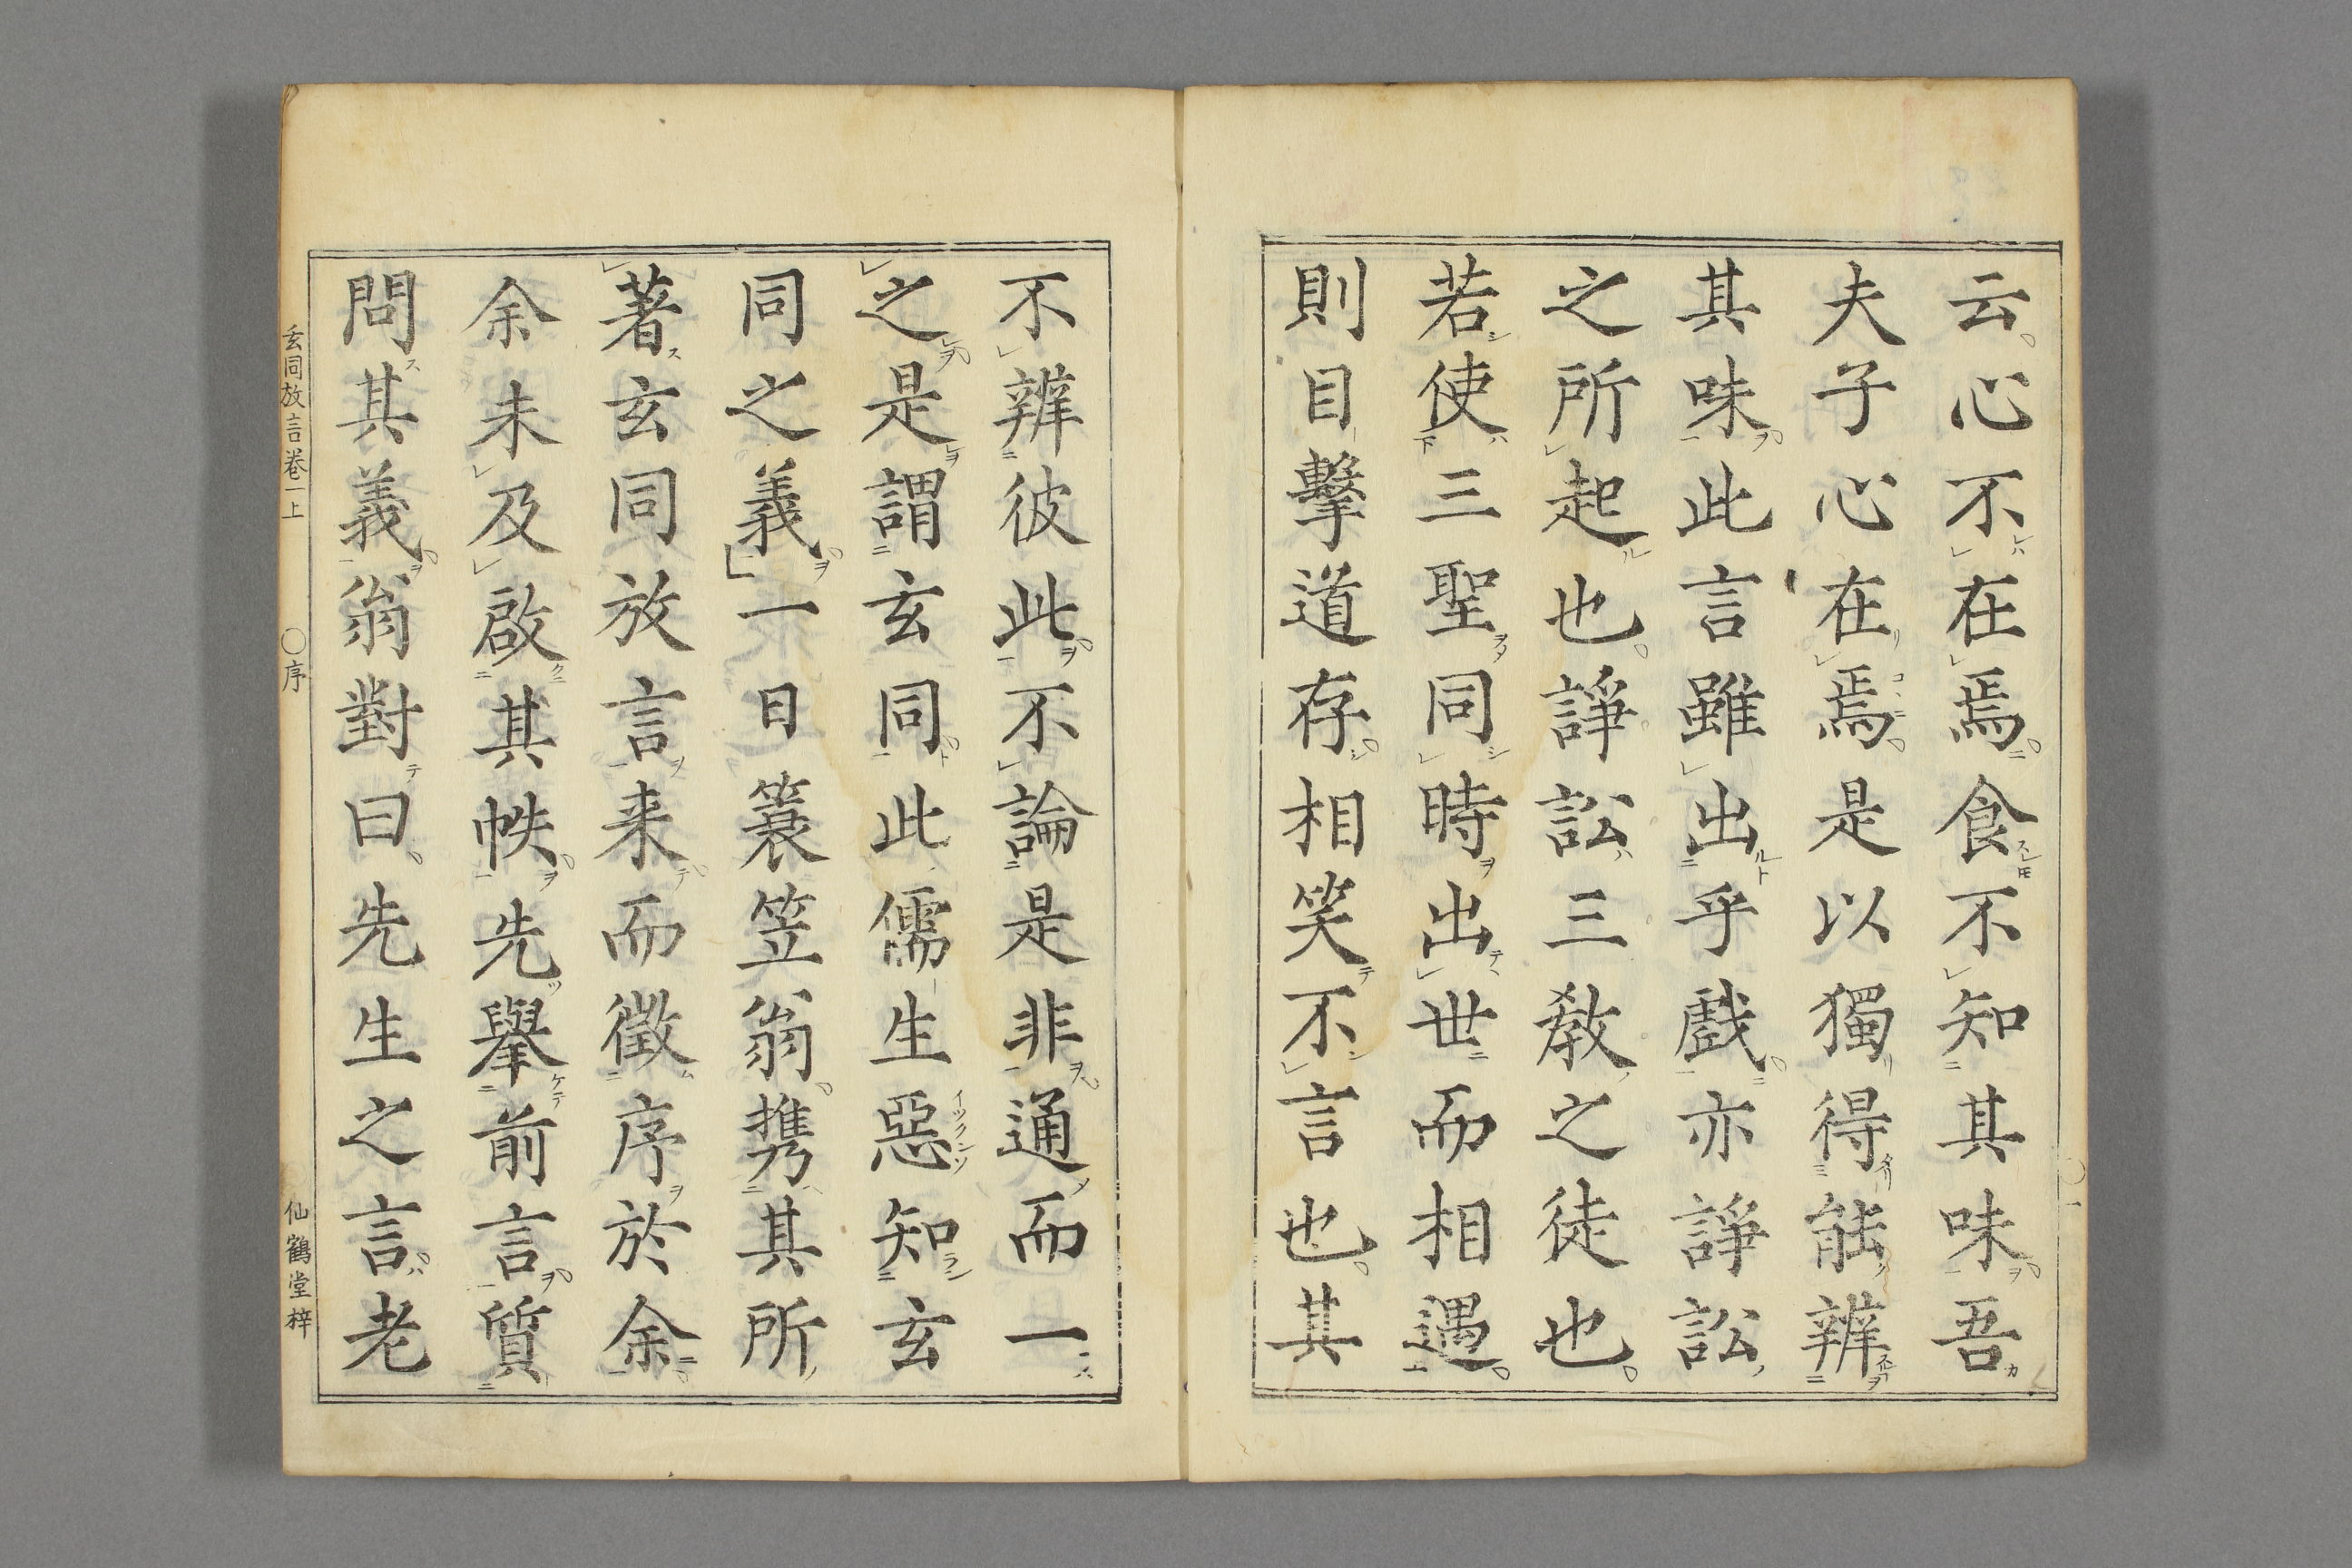 云心不在焉食不知其味吾
夫子心在焉是以獨得能辨
其味此言雖出乎戲亦諍訟
之所起也諍訟三教之徒也
若使三聖同時出世而相遇
則目擊道存相笑不言也其
不辨彼此不論是非通而一
之是謂玄同此儒生惡知玄
同之義」一日簑笠翁携其所
著玄同放言来而徵序於余
余未及啟其帙先擧前言質
問其義翁對曰先生之言老
玄同放言卷一上 〇序 仙鶴堂梓